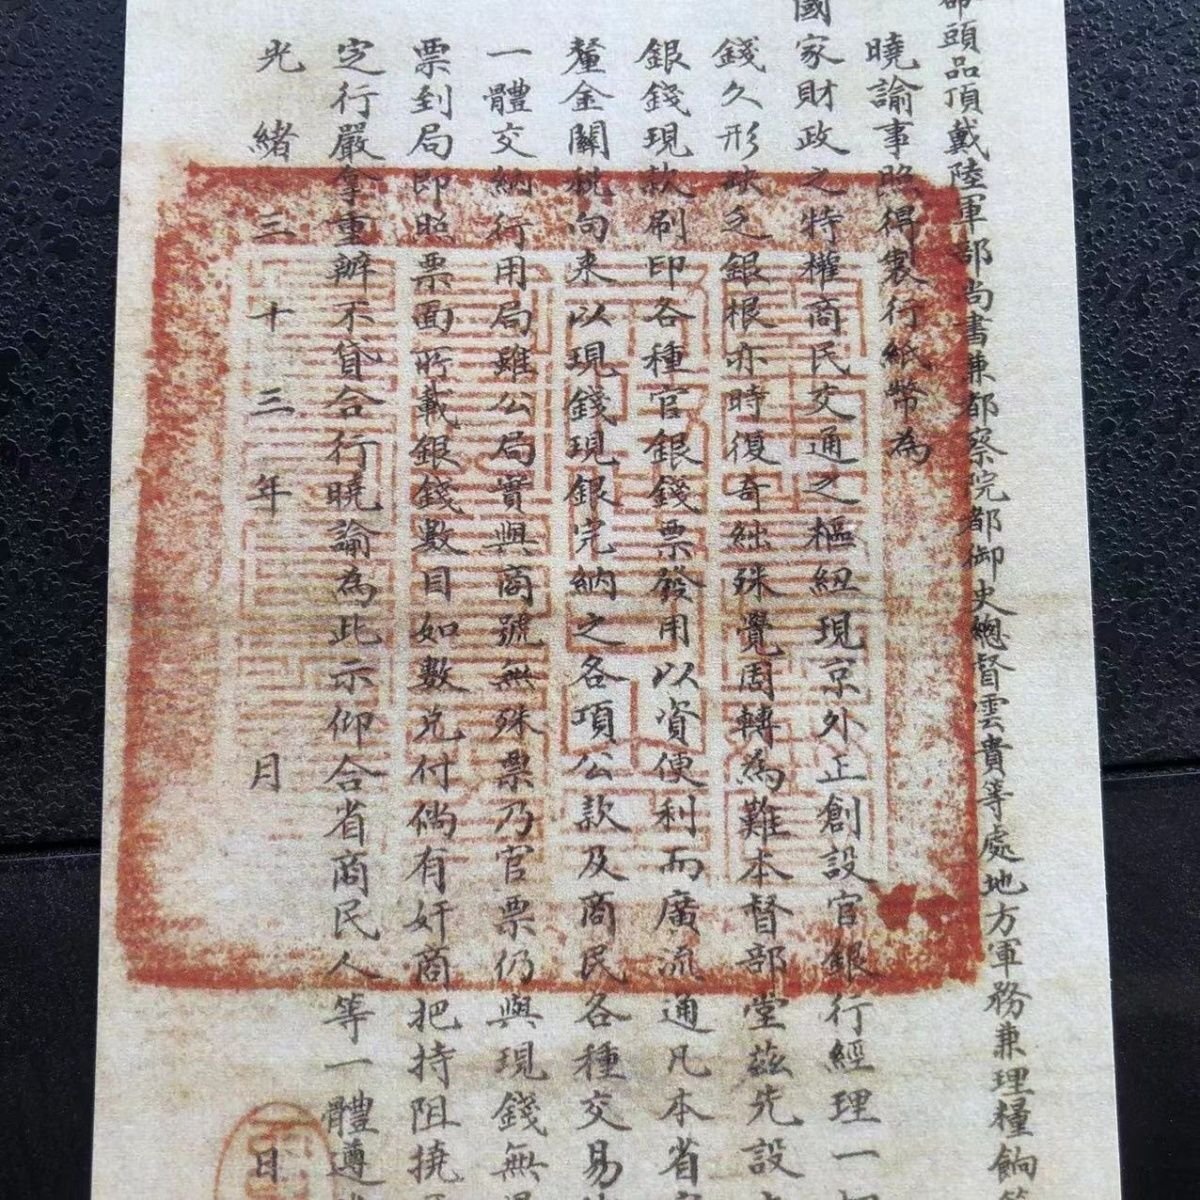 部頭品頂戴陸軍部尚書兼都察院都御史總督雲貴等處地方軍務兼理糧餉
曉諭事照得製行紙幣為
國家財政之特權商民交通之樞紐現京外正創設官銀行經理一切
錢久形缺乏銀根亦時復奇絀殊覺周轉為難本督部堂茲先設
銀錢現款刷印各種官銀錢票發用以資便利而廣流通凡本省
釐金關稅向來以現錢現銀完納之各項公款及商民各種交易
一體交納行用局雖公局實與商號無殊票乃官票仍與現錢無
票到局即照票面所載銀錢數目如數兌付倘有奸商把持阻撓
定行嚴拿重辦不貸合行曉諭為此示仰合省商民人等一體遵
光緒三十三年 月 日